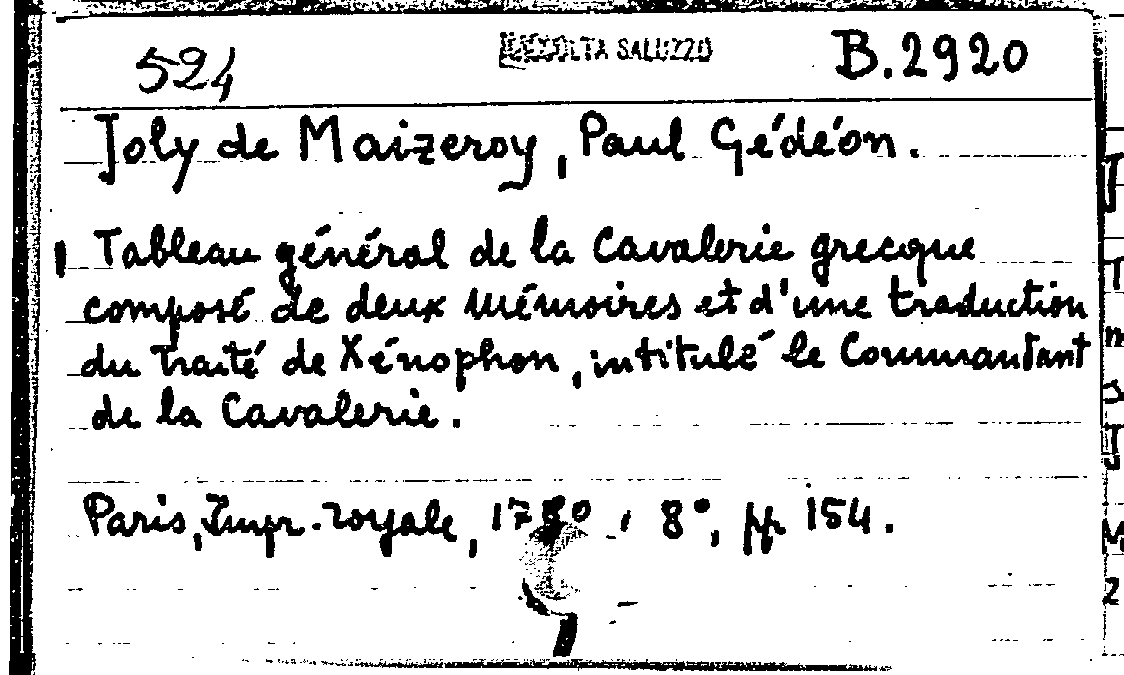 524 RACCOLTA SALUZZO B.2920
Joly de Maizeroy, Paul Gédéon.
Tableau général de la Cavalerie grecque
composé de deux Mémoires et d'une traduction
du Traité de Xénophon, intitulé le Commandant
de la Cavalerie.
Paris, Impr. royale, 1780, 8°, pp 154.